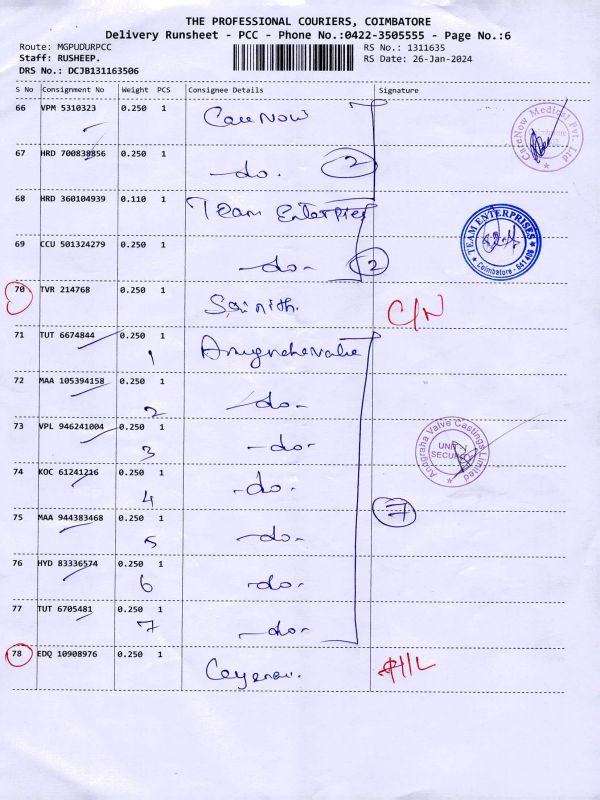 THE PROFESSIONAL COURIERS, COIMBATORE
Delivery Runsheet - PCC - Phone No.:0422-3505555 - Page No.:6
Route: MGPUDURPCC
RS No.: 1311635
Staff: RUSHEEP.
RS Date: 26-Jan-2024
DRS No.: DCJB131163506
S No Consignment No Weight PCS Consignee Details Signature
66 VPM 5310323 0.250 1 CareNow
CareNow Medical Pvt. Ltd
67 HRD 700838856 0.250 1 -do. 2
68 HRD 360104939 0.110 1 Team Enterprises
TEAM ENTERPRISES
Coimbatore - 641 406
69 CCU 501324279 0.250 1 -do- 2
70 TVR 214768 0.250 1 Sainith. C/N
71 TUT 6674844 0.250 1 1
72 MAA 105394158 0.250 1 2 -do-
73 VPL 946241004 0.250 1 3 -do-
Anugraha Valve Castings Limited
UNIT
SECURITY
74 KOC 61241216 0.250 1 4 -do-
75 MAA 944383468 0.250 1 5 -do- 7
76 HYD 83336574 0.250 1 6 -do-
77 TUT 6705481 0.250 1 7 -do-
78 EDQ 10908976 0.250 1